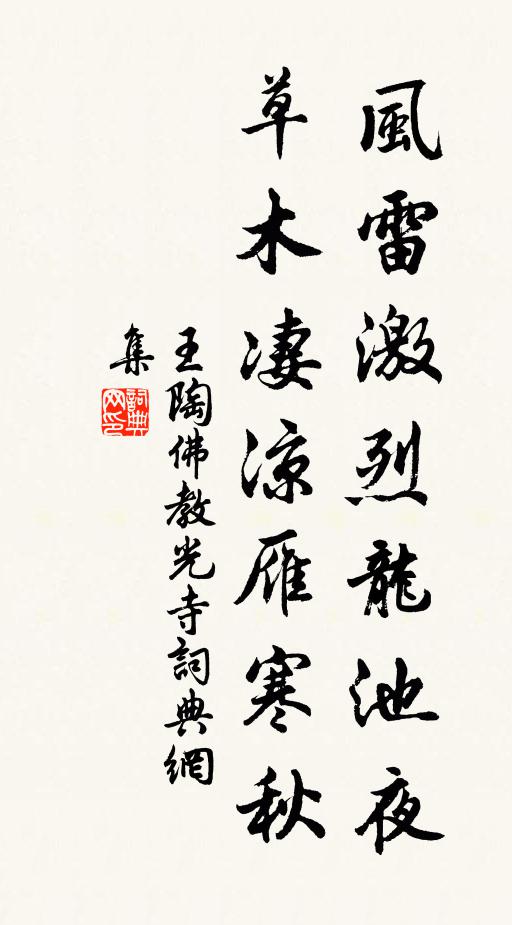 風雷激烈龍池夜
草木凄涼雁寒秋
王陶佛教光寺詞典網
集
詞典
网印